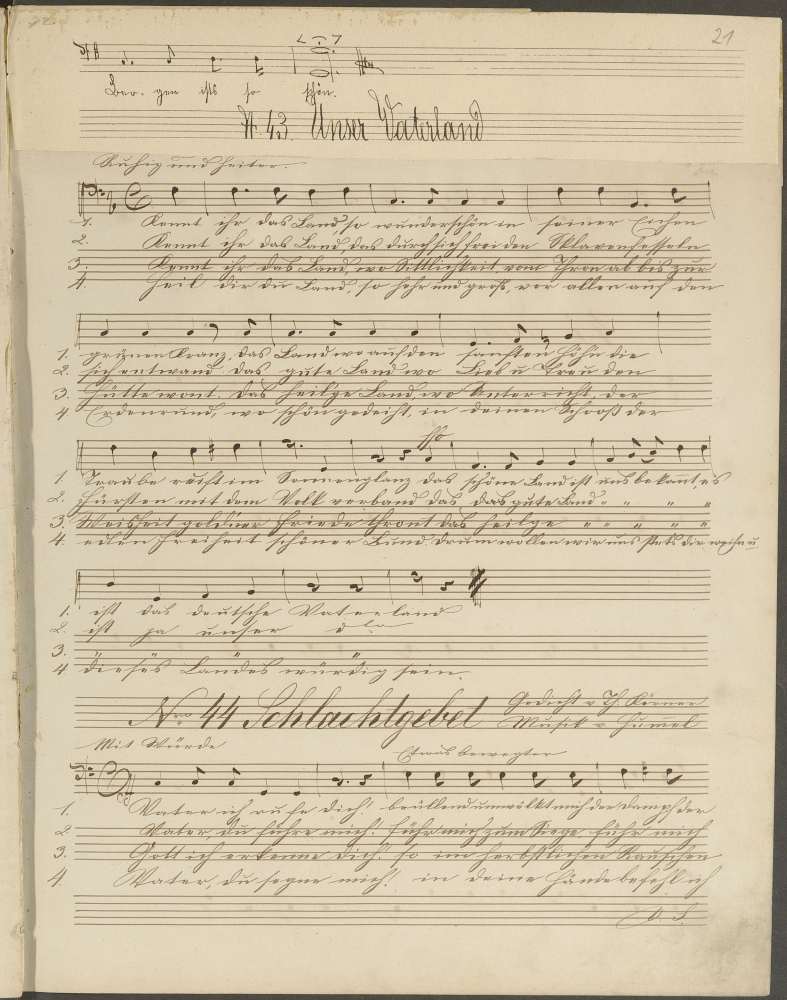 21
Ber-gen ists so schön.
N. 43. Unser Vaterland
Ruhig und heiter.
1. Kennt ihr das Land, so wunderschön in seiner Eichen
2. Kennt ihr das Land, das durch sich frei den Sklavenfesseln
3. Kennt ihr das Land, wo Sittlichkeit vom Thron ab bis zur
4. Heil dir du Land, so hehr und groß, vor allen auf den
1. grünen Kranz, das Land wo auf den sanften Höhn die
2. sich entwand das gute Land, wo Lieb u Treu den
3. Hütte wont. das heilge Land, wo Unterricht, der
4 Erdenrund, wo schön gedeiht, in deinem Schooß der
1. Traube reift im Sonnenglanz das schöne Land ist uns bekant, es
2. Fürsten mit dem Volk verband das, das gute Land " " " "
3. Weisheit goldner Friede thront das heilge " " " " "
4. edlen Freiheit schöner Bund. drum wollen wir uns stets dir weihn u
1. ist das deutsche Vaterland
2. ist ja unser dto
3. " " "
4 dieses Landes würdig sein.
Nro 44 Schlachtgebet Gedicht v Th. Körner
Musik v Hummel
Mit Würde Etwas bewegter
1. Vater ich rufe dich! brüllend umwölkt mich der Dampf der
2 Vater, du führe mich! Führ mich zum Siege, führ mich
3. Gott ich erkenne dich. so im herbstlichen Rauschen
4. Vater, du segne mich! in deine Hände befehl ich
V. S.